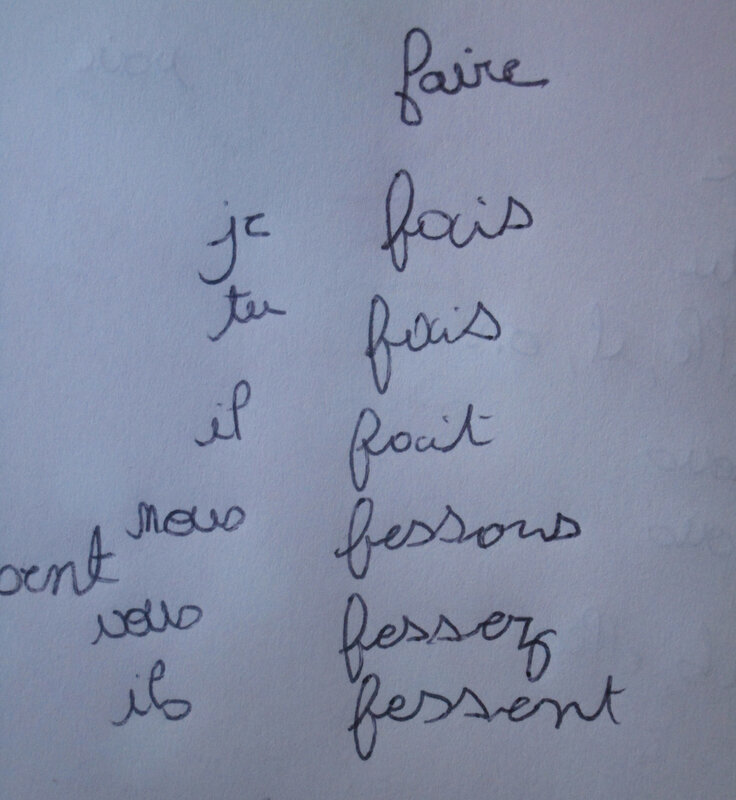 faire
je fais
tu fais
il fait
nous fessons
vous fessez
ils fessent